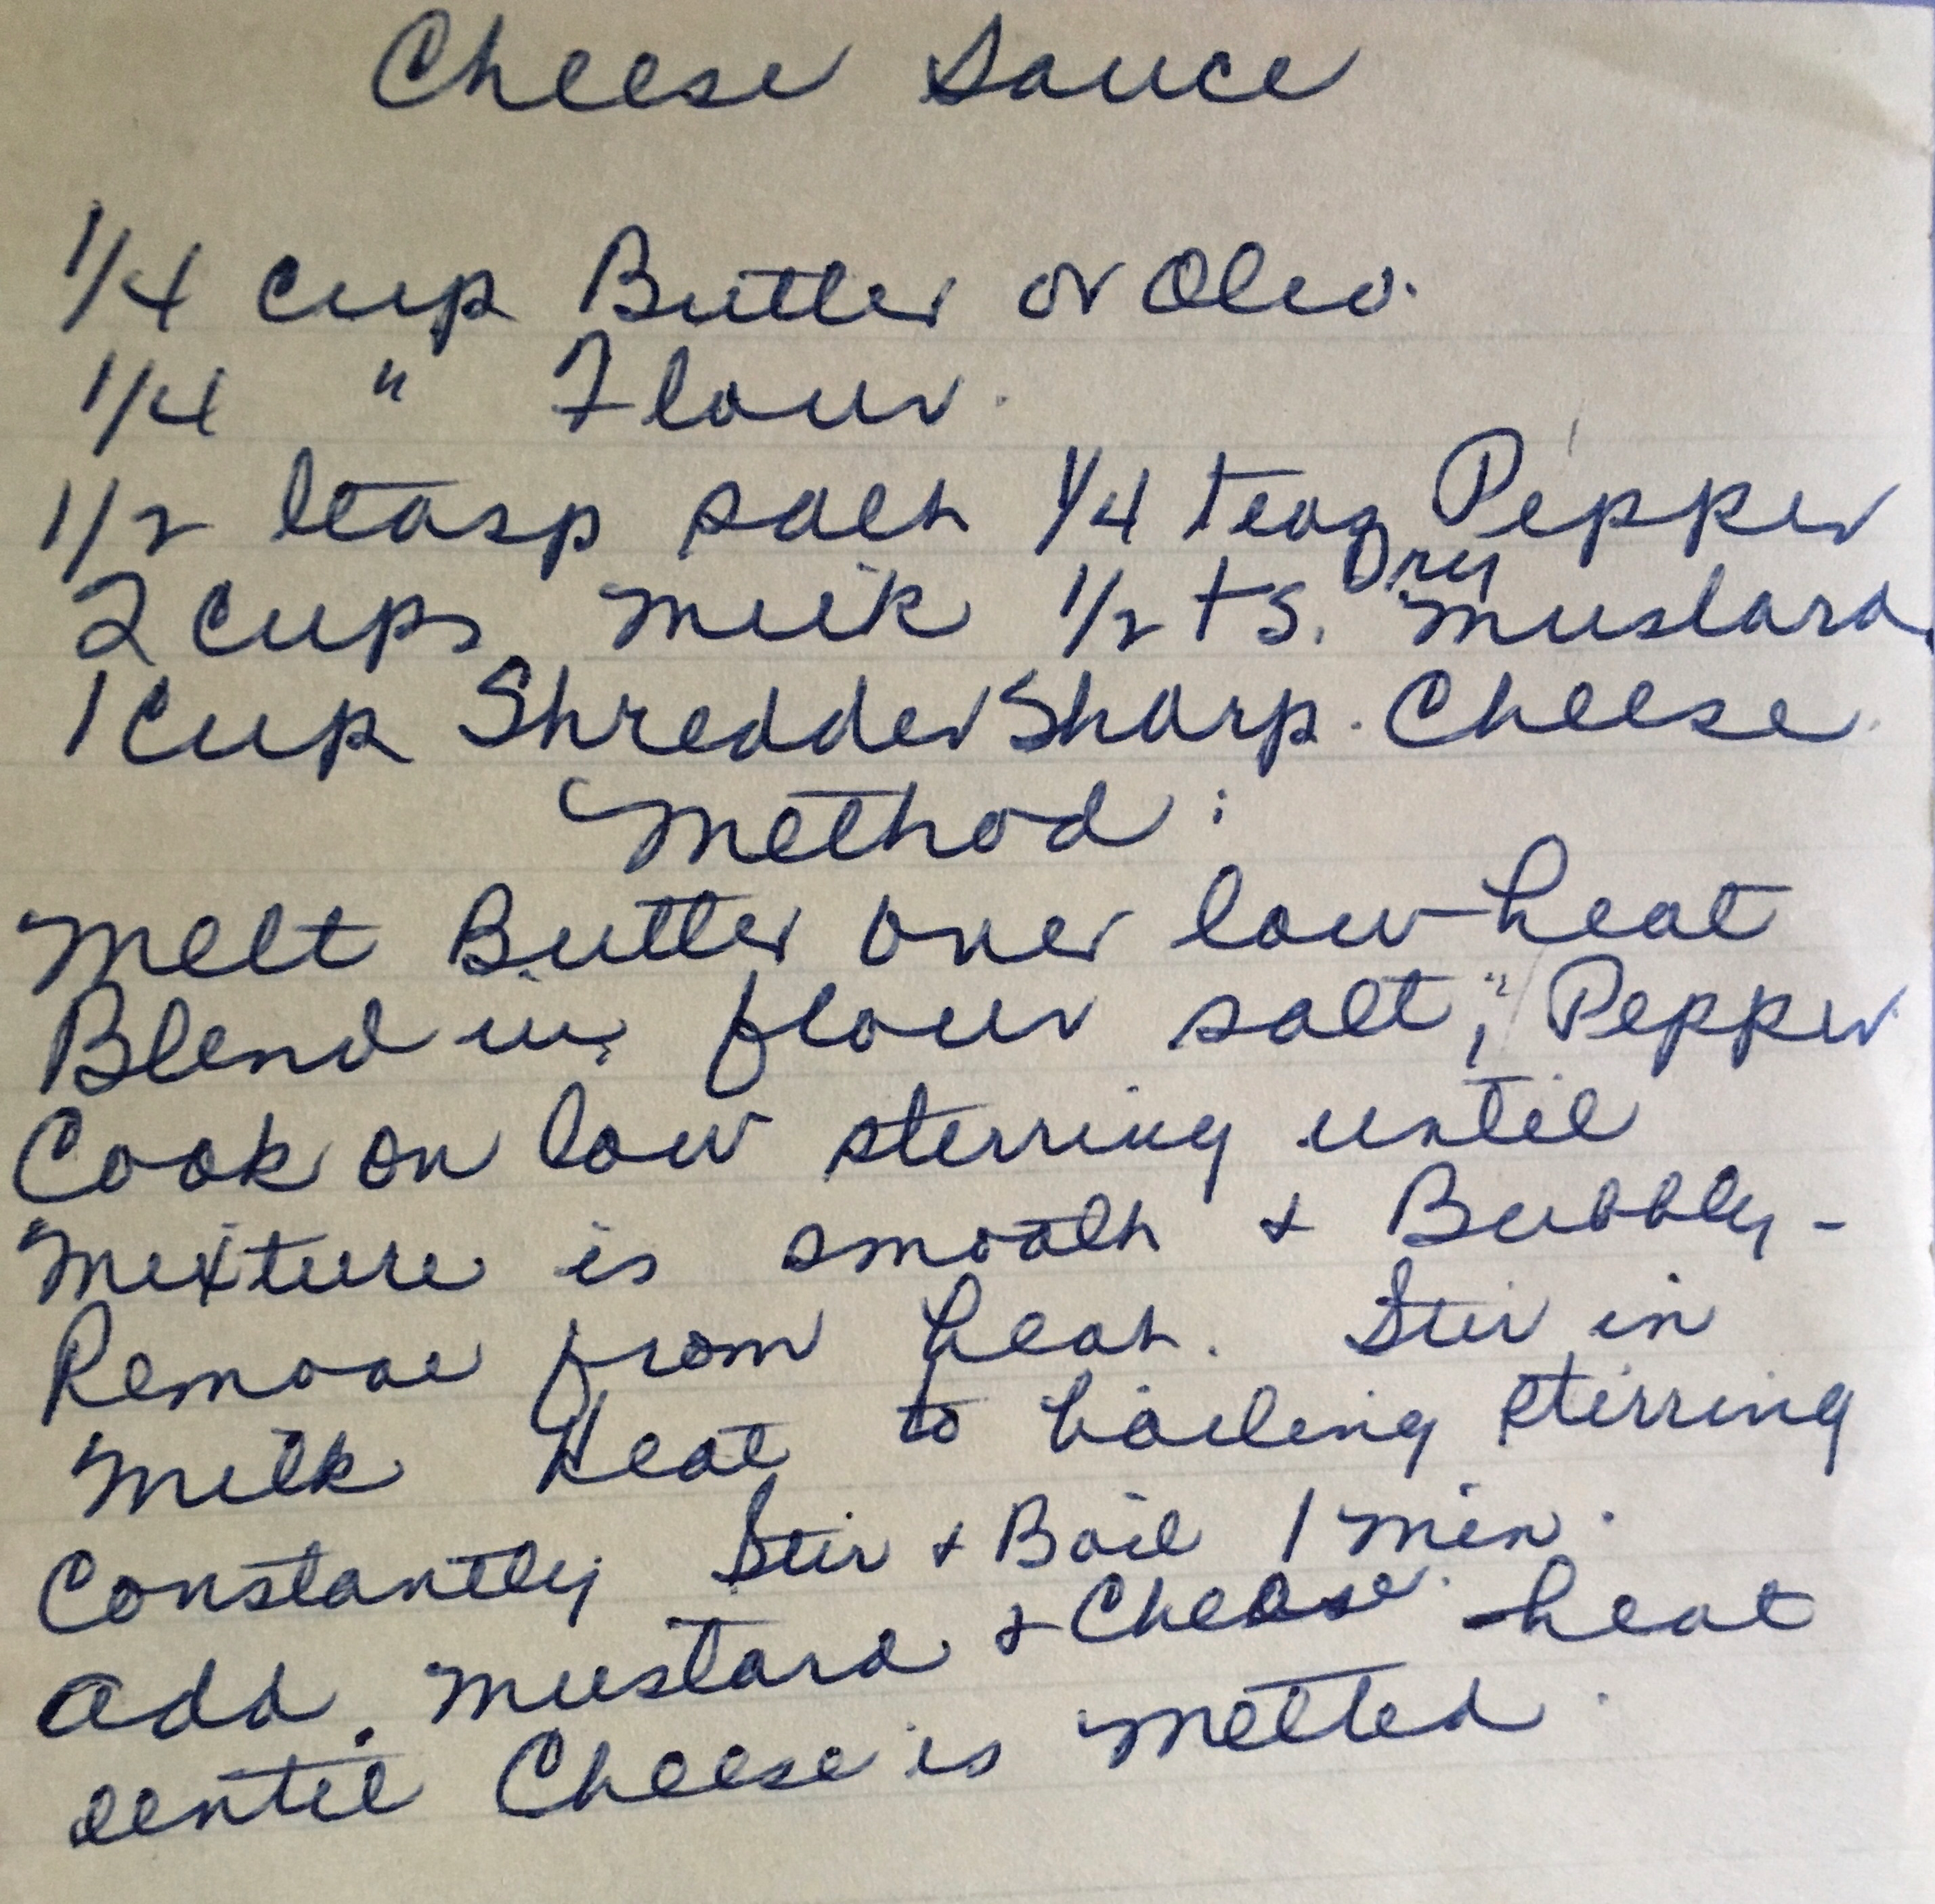 Cheese Sauce
1/4 cup Butter or Oleo.
1/4 " Flour.
1/2 teasp salt 1/4 teas Pepper
2 cups milk 1/2 ts. Dry mustard
1 cup Shredded Sharp. Cheese.
Method:
Melt Butter over low heat
Blend in flour salt, " Pepper
Cook on low sterring until
mixture is smooth & Bubbly -
Remove from heat. Stir in
milk Heat to boiling stirring
Constantly Stir & Boil 1 min.
add. mustard & Cheese. heat
until Cheese is melted.